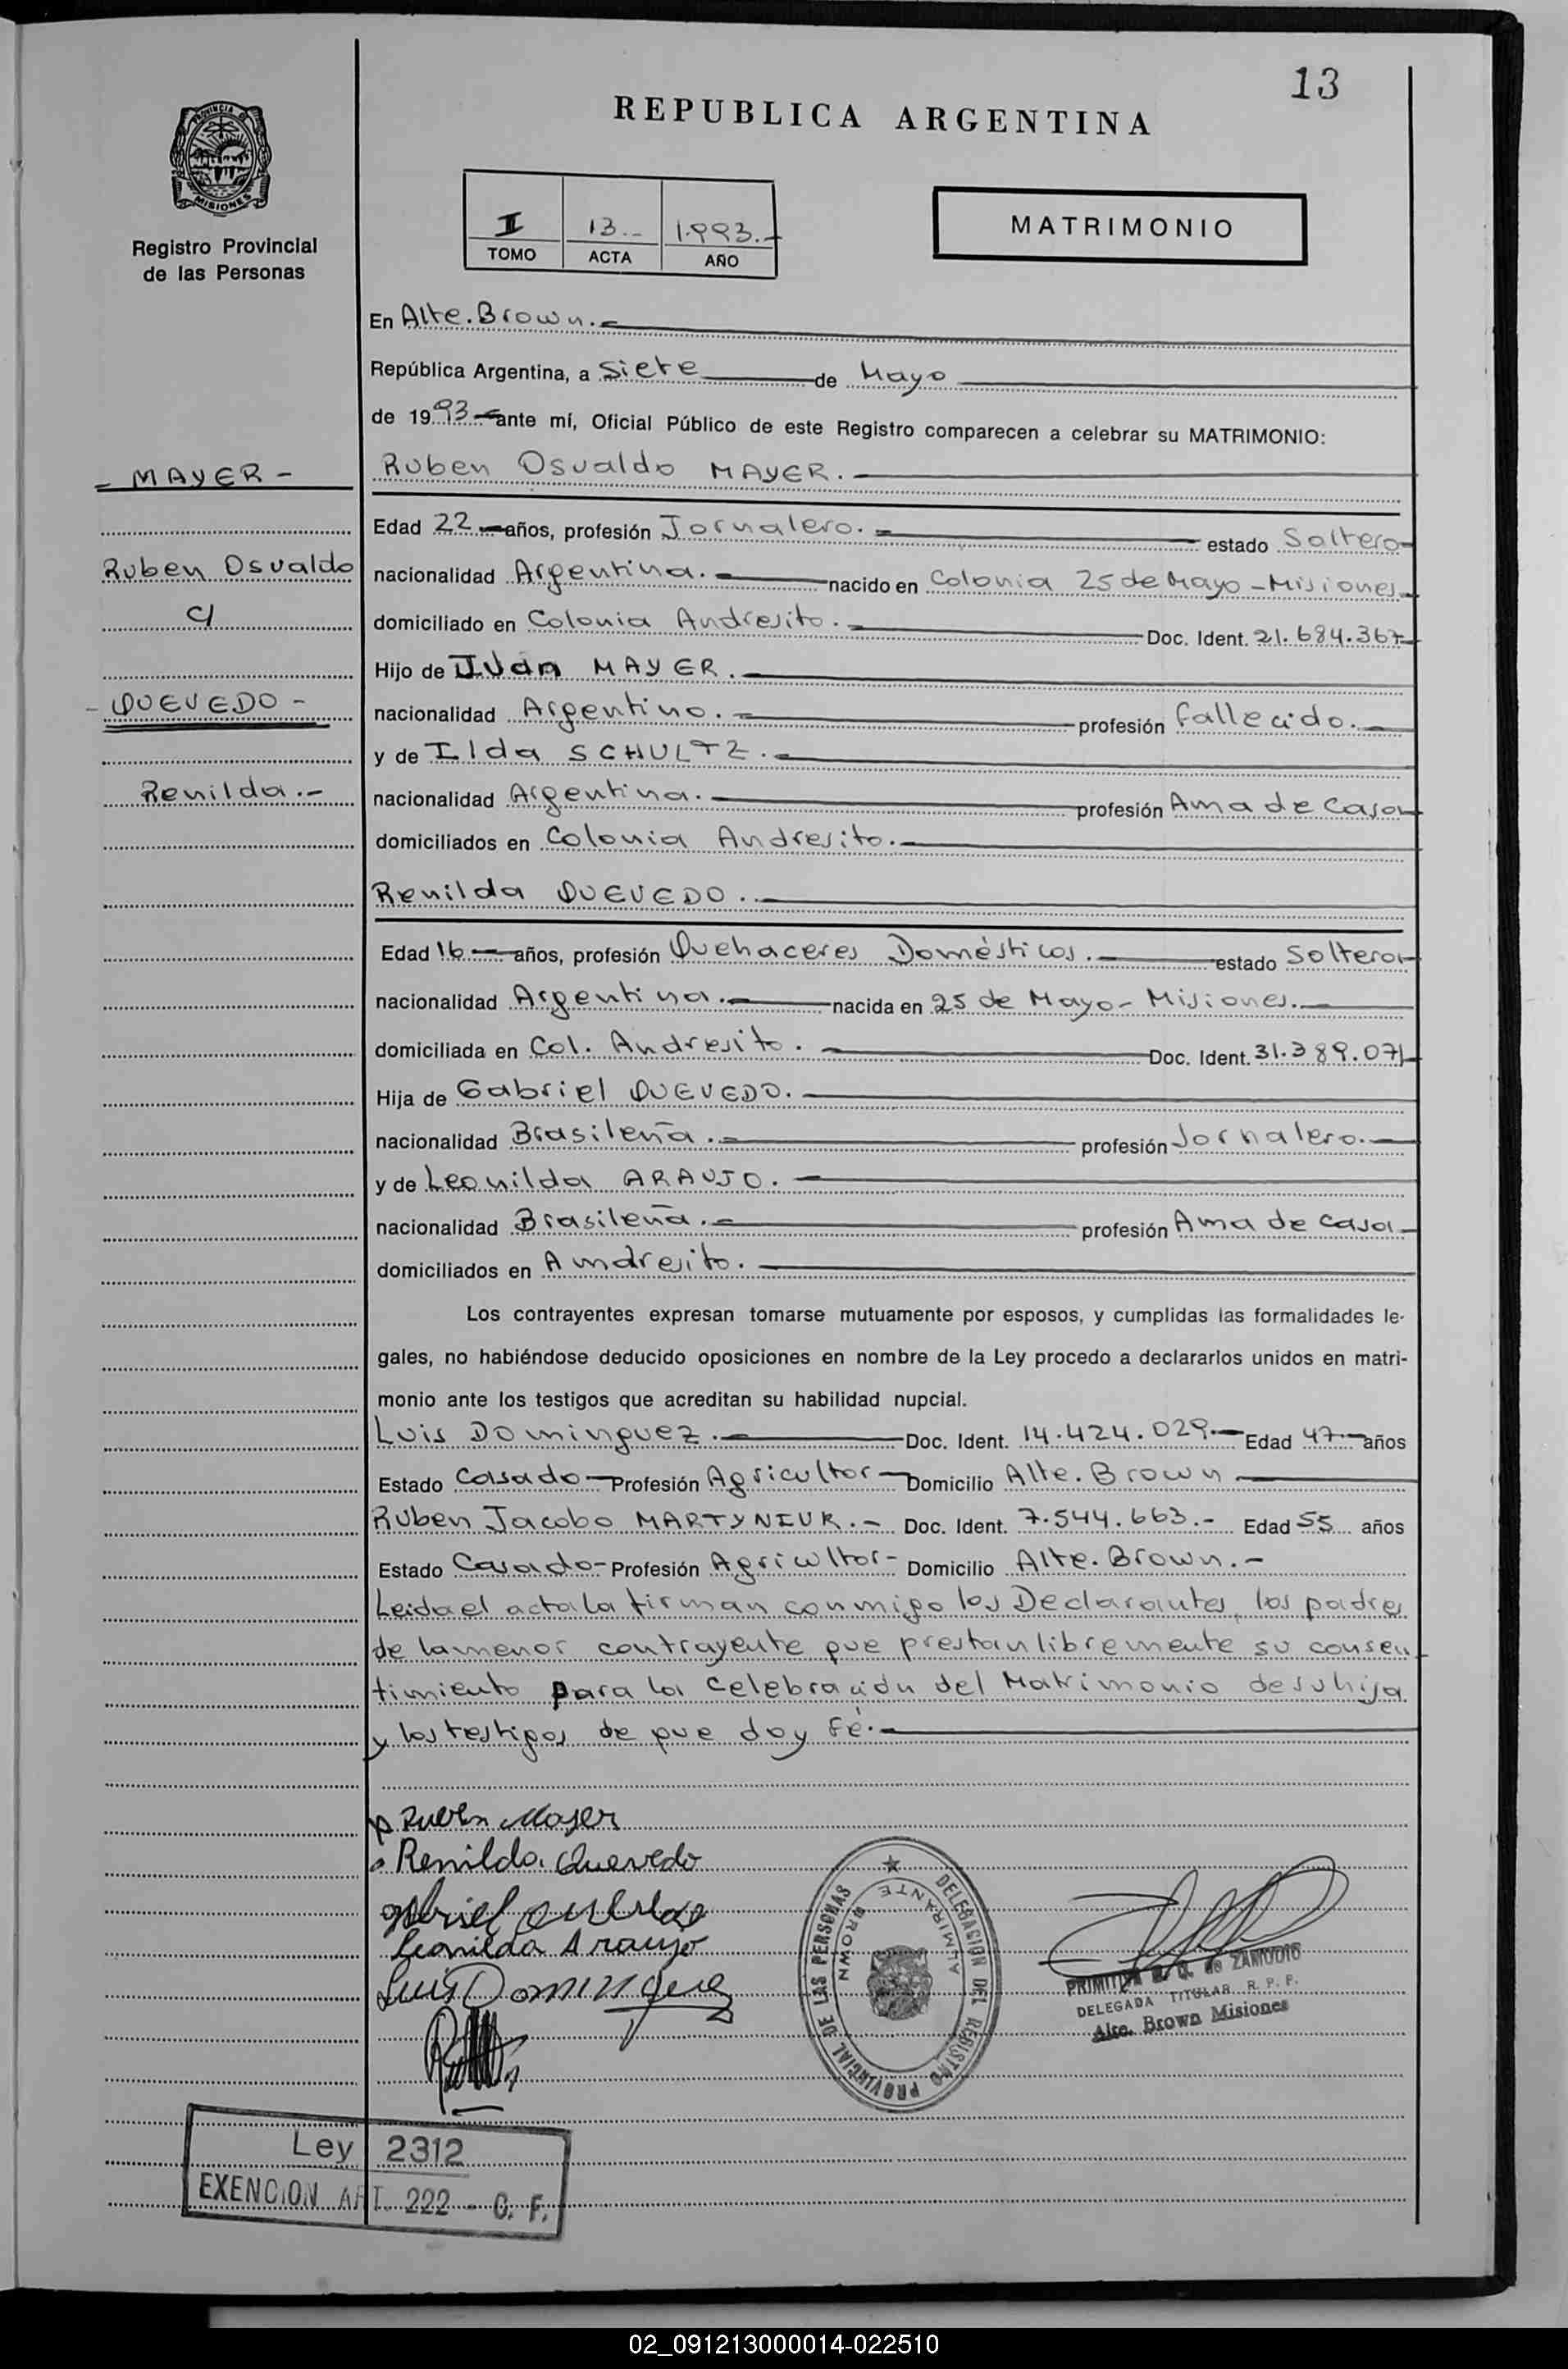 13
REPUBLICA ARGENTINA
PROVINCIA
MISIONES
Registro Provincial
de las Personas
I 13.- 1.993.-
TOMO ACTA AÑO
MATRIMONIO
En Alte. Brown.-
República Argentina, a Siete de Mayo
de 1993 ante mí, Oficial Público de este Registro comparecen a celebrar su MATRIMONIO:
- MAYER -
Ruben Osvaldo MAYER.-
Edad 22 años, profesión Jornalero.- estado Soltero
Ruben Osvaldo
nacionalidad Argentina.- nacido en Colonia 25 de Mayo - Misiones
c/
domiciliado en Colonia Andresito.- Doc. Ident. 21.684.367
Hijo de Juan MAYER.-
- QUEVEDO -
nacionalidad Argentino.- profesión fallecido.-
y de Ilda SCHULTZ.-
Renilda.-
nacionalidad Argentina.- profesión Ama de Casa
domiciliados en Colonia Andresito.-
Renilda QUEVEDO.-
Edad 16 años, profesión Quehaceres Domésticos.- estado Soltera
nacionalidad Argentina.- nacida en 25 de Mayo - Misiones.-
domiciliada en Col. Andresito.- Doc. Ident. 31.389.071
Hija de Gabriel QUEVEDO.-
nacionalidad Brasileña.- profesión Jornalero.-
y de Leonilda ARAUJO.-
nacionalidad Brasileña.- profesión Ama de Casa
domiciliados en Andresito.-
Los contrayentes expresan tomarse mutuamente por esposos, y cumplidas las formalidades le-
gales, no habiéndose deducido oposiciones en nombre de la Ley procedo a declararlos unidos en matri-
monio ante los testigos que acreditan su habilidad nupcial.
Luis Dominguez.- Doc. Ident. 14.424.029 Edad 47 años
Estado Casado Profesión Agricultor Domicilio Alte. Brown
Ruben Jacobo MARTYNIUK.- Doc. Ident. 7.544.663.- Edad 55 años
Estado Casado- Profesión Agricultor- Domicilio Alte. Brown.-
Leida el acta la firman conmigo los Declarantes, los padres
de la menor contrayente que prestan libremente su consen
timiento para la Celebración del Matrimonio de su hija
y los testigos de que doy fé.-
Ruben Mayer
Renilda Quevedo
Gabriel Quevedo
Leonilda Araujo
Luis Dominguez
DELEGACION DEL REGISTRO PROVINCIAL DE LAS PERSONAS
ALMIRANTE BROWN
PRIMITIVA de ZAMUDIO
DELEGADA TITULAR R. P. P.
Alte. Brown Misiones
Ley 2312
EXENCION ART. 222 - C. F.
02_091213000014-022510